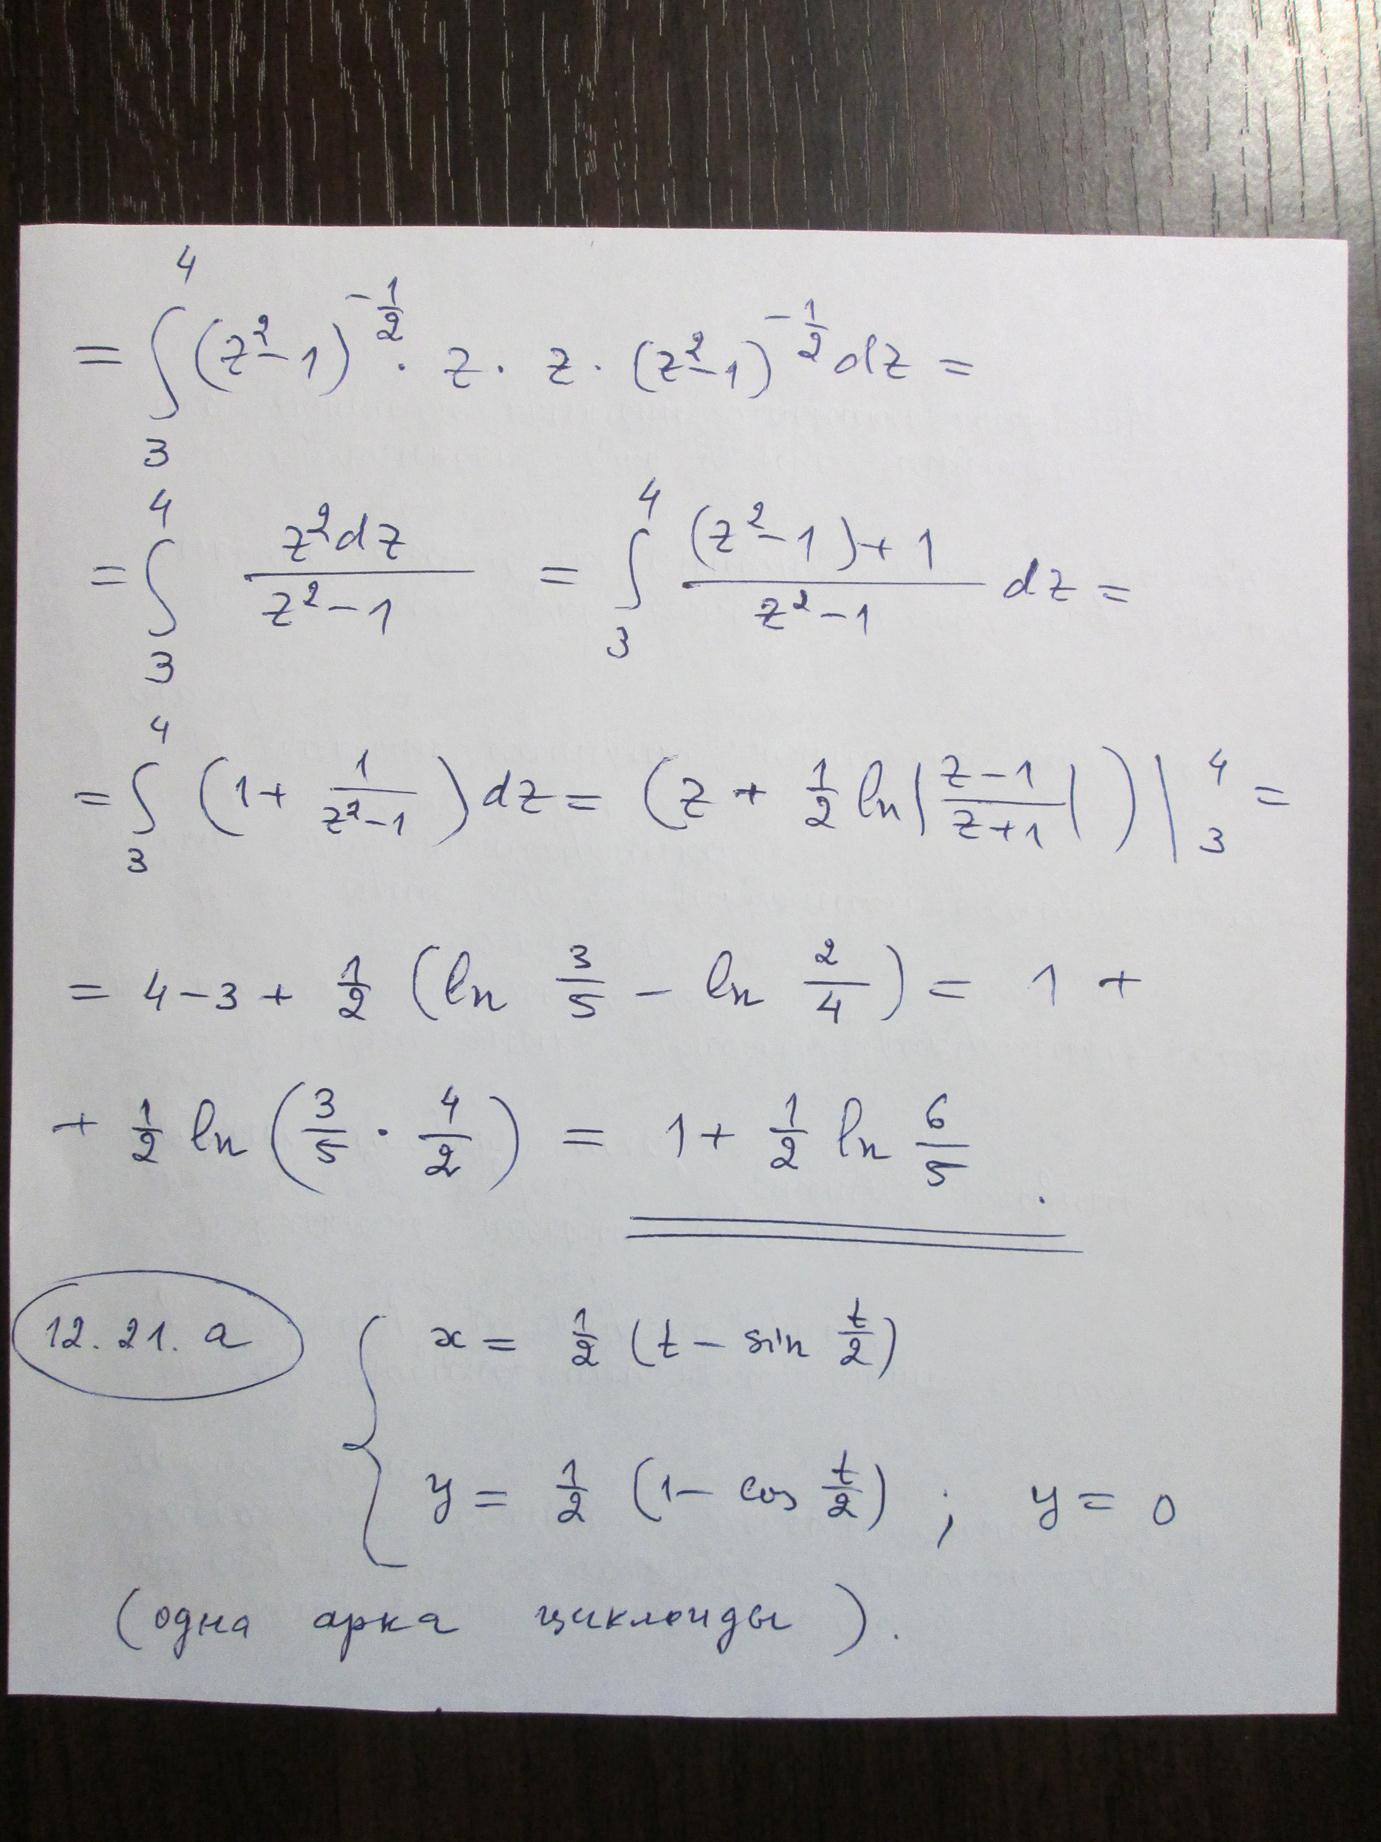 = ∫₃⁴ (z² - 1)^(-1/2) · z · z · (z² - 1)^(-1/2) dz =
= ∫₃⁴ z² dz / (z² - 1) = ∫₃⁴ ((z² - 1) + 1) / (z² - 1) dz =
= ∫₃⁴ (1 + 1/(z² - 1)) dz = (z + 1/2 ln |(z - 1)/(z + 1)|) |₃⁴ =
= 4 - 3 + 1/2 (ln 3/5 - ln 2/4) = 1 +
+ 1/2 ln (3/5 · 4/2) = 1 + 1/2 ln 6/5 .
12.21.а { x = 1/2 (t - sin t/2)
y = 1/2 (1 - cos t/2) ; y = 0
(одна арка циклоиды).